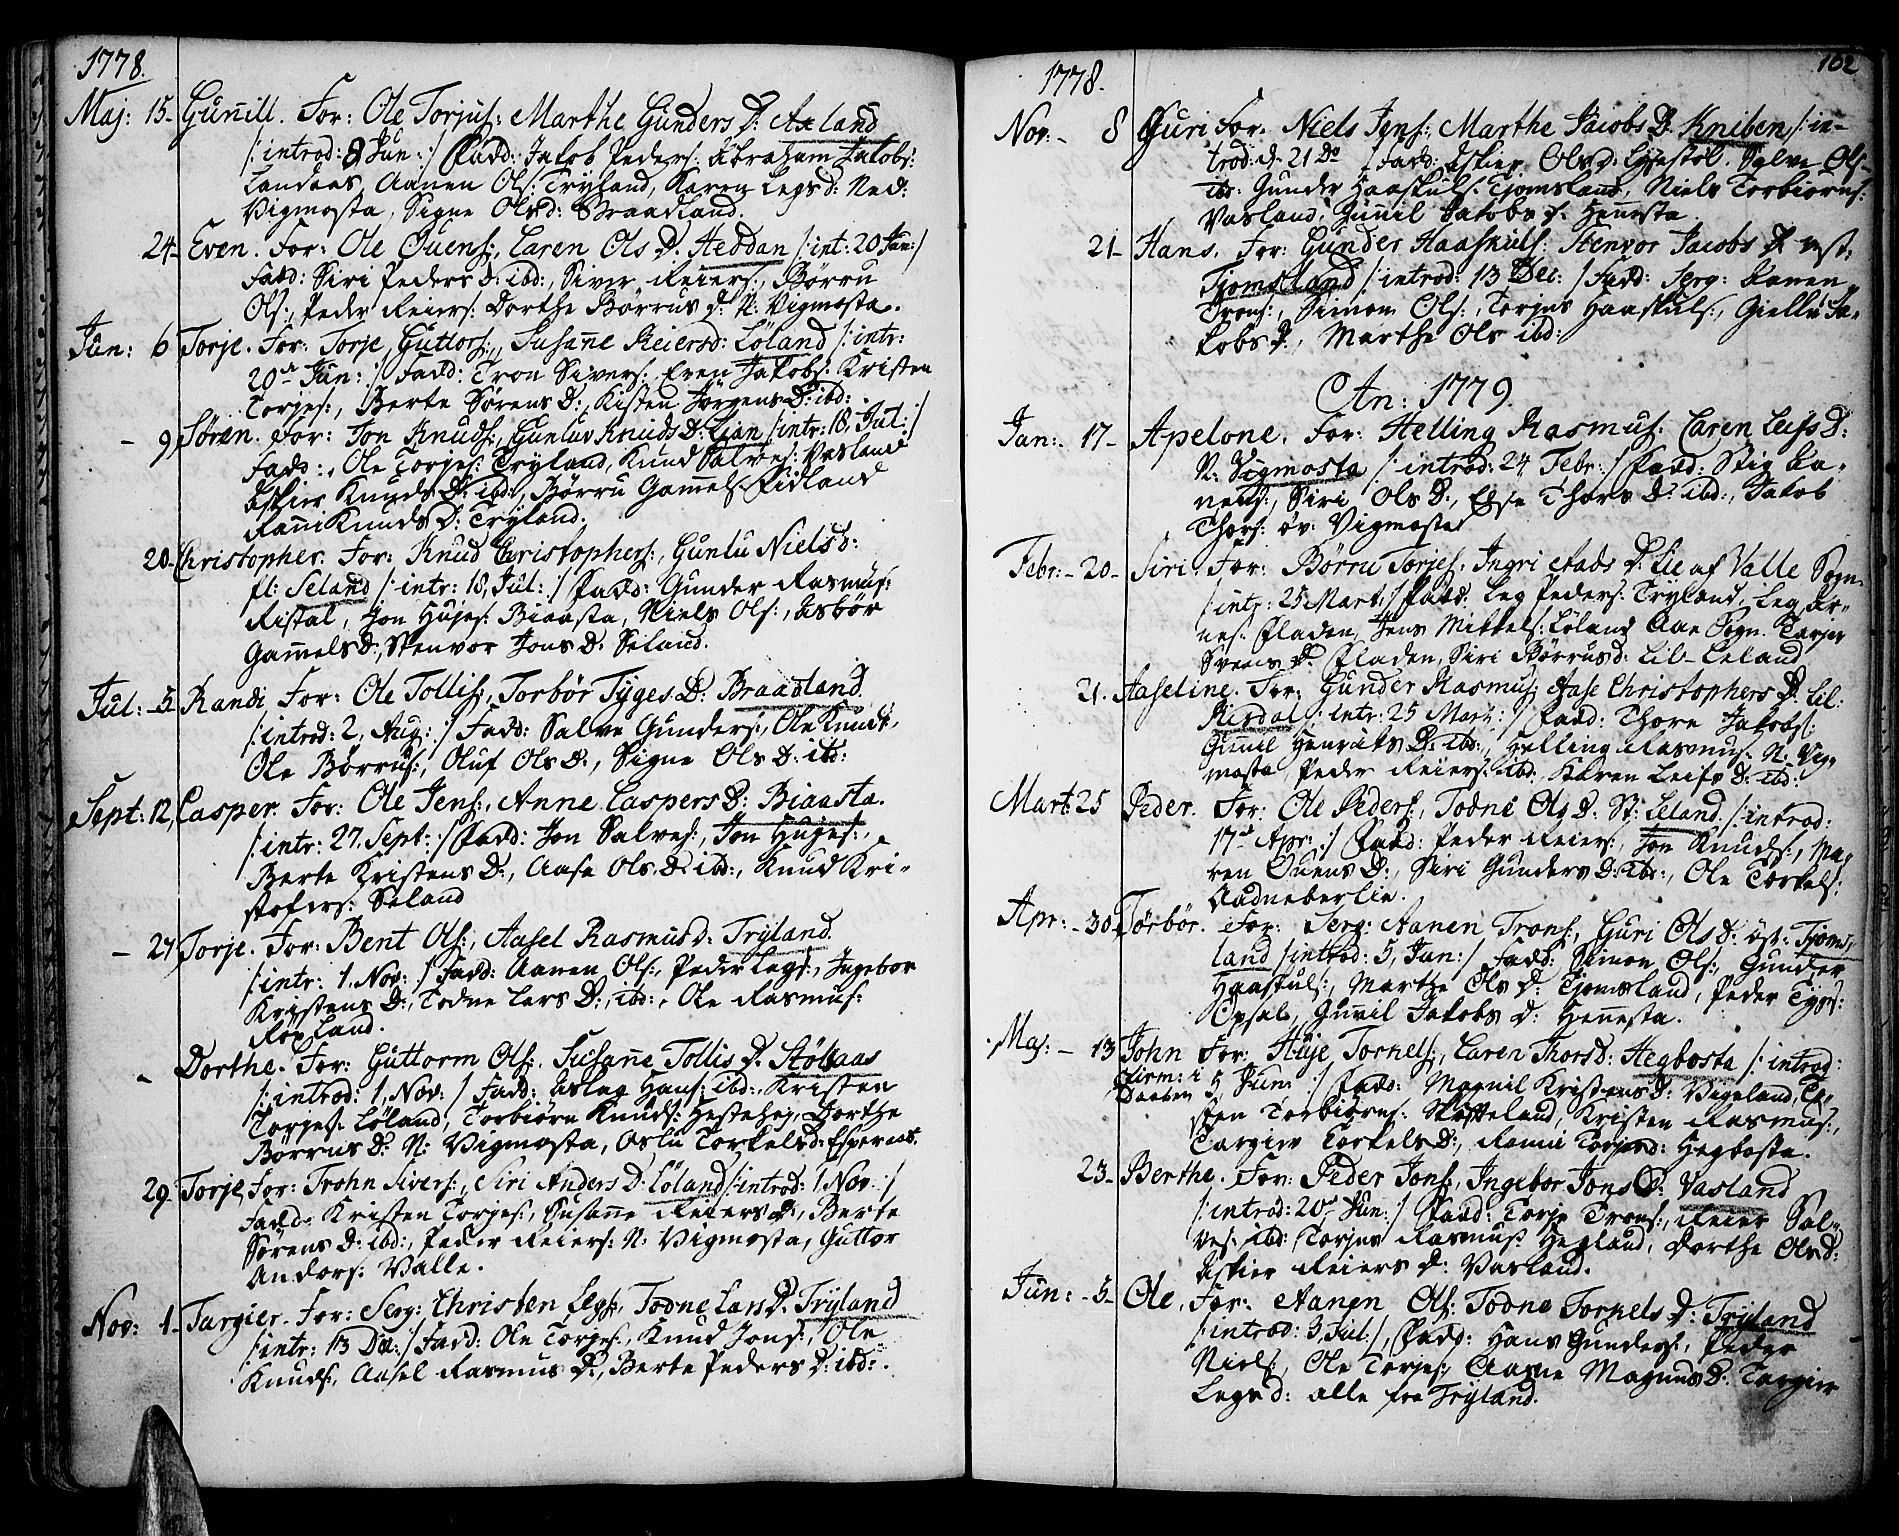 1778.
Maj: 15- Guñill. For: Ole Torjus: Marthe Gunders D: Axland
/: introd: 8 Jun: :/ Fadd: Jakob Peders: Abraham Jakobs:
Landaas, Aanen Ols: Trÿland, Karen Legs d: Ned:
Vigmosta, Signe Olsd: Braadland.
24- Even. For: Ole Ouens:, Caren Ols D. Heddan /: int: 20 Jun: /
Fadd: Siri Peders D: ibd:, Siver Reiers:, Börru
Ols:, Peder Reiers: Dorthe Börrus d: N: Vigmosta.
Jun: 6 Torje. For: Torje Guttors:, Susañe Reiersd: Löland /: intr:
20de Jun: :/ Fadd: Tron Sivers: Even Jakobs: Kristen
Torjes:, Berte Sörens D:, Kisten Jörgens D: ibd:
- 9, Sören. For: Jon Knuds:, Gunluv Knuds D: Lian /: intr: 18, Jul: /
Fadd:, Ole Torjes: Trÿland, Knud Salves: Vasland
Askier Knuds D: ibd:, Börru Gamels: Fidland
Rañi Knuds D: Trÿland.
20- Christopher. For: Knud Christophers:, Gunlu Niels d:
fl: Seland /: intr: 18, Jul: :/ Fadd: Gunder Rasmus:
Ristal, Jon Hujes: Biaasta, Niels Ols:, Asbör
Gamels D:, Stenvor Jons D: Seland.
Jul: -5 Randi. For: Ole Tollis:, Torbör Tÿges D: Braadland.
/: introd: 2, Aug: :/ Fadd: Salve Gunders:, Ole Knuds,
Ole Börrus:, Oluf Ols D:, Signe Ols D: ibd:
Sept: 12, Casper. For: Ole Jens:, Anne Caspers D: Biaasta.
/: intr: 27, Sept: :/ Fadd: Jon Salves:, Jon Hujes:,
Berte Kristens D:, Aase Ols D: ibd:, Knud Kri-
stofers: Seland
- 27, Torje. For: Bent Ols:, Aasel Rasmus d: Trÿland.
/: intr: 1, Nov: :/ Fadd: Aanen Ols:, Peder Legs:, Ingebor
Kristens D:, Todne Lars D:, ibd:, Ole Rasmus:
Röyland.
- Dorthe. For: Guttorm Ols:, Susañe Tollis D. Stölaas
/: introd: 1, Nov: / Fadd: Aslag Hans: ibd:, Kristen
Torjes: Löland, Torbiörn Knuds: Hestehej, Dorthe
Börrus D: N: Vigmosta, Oslu Torkelsd: Espenes.
29. Torje, For: Trohn Sivers:, Siri Anders D: Löland /: introd: 1, Nov: :/
Fadd: Kristen Torjes:, Susañe Reiers d:, Berte
Sörens D: ibd:, Peder Reiers: N: Vigmosta, Guttor
Andors: Valle.
Nov: 1- Targier. For: Serg: Christen Legs:, Todne Lars D. Trÿland
/: intr: 13 Dec: / Fadd: Ole Torjes:, Knud Jons:, Ole
Knuds:, Aasel Rasmus D:, Berte Peders D: ibd:.
162
1778.
Nov: - 8 Guri For: Niels Jens:, Marthe Jacobs D. Kniben /: in-
trod: d. 21 Do / Fadd: Askier Ols d: Lÿestöl. Salve Ols-
ibd: Gunder Haaskuls: Tjomsland, Niels Torbiörns:
Vasland, Guñil Jakobs d: Heñesta.
21- Hans. For: Gunder Haaskuls: Stenvor Jacobs D. vest:
Tjomsland /: introd: 13 Dec: / Fadd: Serg: Aanen
Trons:, Simon Ols:, Torjus Haaskuls:, Giellu Ja-
kobs D:, Marthe Ols ibd:
An: 1779.
Jan: - 17- Apelone. For: Helling Rasmus: Caren Leifs D:
N: Vigmosta /: introd: 24 Febr: / Fadd: Stig Aa-
nens:, Siri Ols D:, Else Thors D: ibd:, Jakob
Thors: öv: Vigmosta
Febr: - 20- Siri. For: Börru Torjes: Ingri Aads D: Lie af Valle Sogn
/: intr: 25 Mart: / Fadd: Leg Peders: Trÿland, Leg Ar-
nes: Fladen, Jens Mikkels: Löland Aae Sogn. Targier
Svens D: Fladen, Siri Börrus d: Lil-Leland
21. Aaseline. For: Gunder Rasmus: Aase Christophers D: Lil:
Rirdal /: intr: 25 Mart: :/ Fadd: Thore Jakobs:
Guñil Henriks D: ibd:, Helling Rasmus: N: Vig-
mosta, Peder Reiers: ibd:, Karen Leifs D: ibd:
Mart: 25 Peder. For: Ole Peders:, Todne Ols D. St: Leland. /: introd:
17de Apr: :/ Fadd: Peder Reiers:, Jon Knuds:, Ma-
ren Ouens D:, Siri Gunders D: ibd:, Ole Torkels:
Aadneberlie.
Apr: - 30, Torbör. For: Serg: Aanen Trons:, Guri Ols D: öst: Tjoms-
land /: introd: 5, Jun: / Fadd: Simon Ols:, Gunder
Haaskuls:, Marthe Ols D: Tjomsland, Peder Tÿgs:
Opsal, Guñil Jakobs d: Heñesta.
Maj: - 13 John For: Huje Torkels:, Caren Thorsd: Hegbosta /: introd:
Firm: i Daaben 5, Jun: :/ Fadd: Magnil Kristens D: Vigeland,
sten Torbiörns: Skofteland, Kristen Rasmus:,
Targier Torkels D:, Rañi Torjusd: Hegbosta.
23- Berthe. For: Peder Jons:, Ingebor Jons D: Vasland
/: introd: 20de Jun: :/ Fadd: Torje Trons:, Reier Sal-
ves: ibd: Torjus Rasmus: Hegland, Dorthe Ols D:
Askier Reiers D: Vasland.
Jun: - 5- Ole. For: Aanen Ols: Todne Torkels D: Trÿland
/: introd: 3, Jul: /, Fadd: Hans Gunders:, Peder
Niels:, Ole Torjes: Aasne Magnus D: Targier
Legs d: alle fra Trÿland.